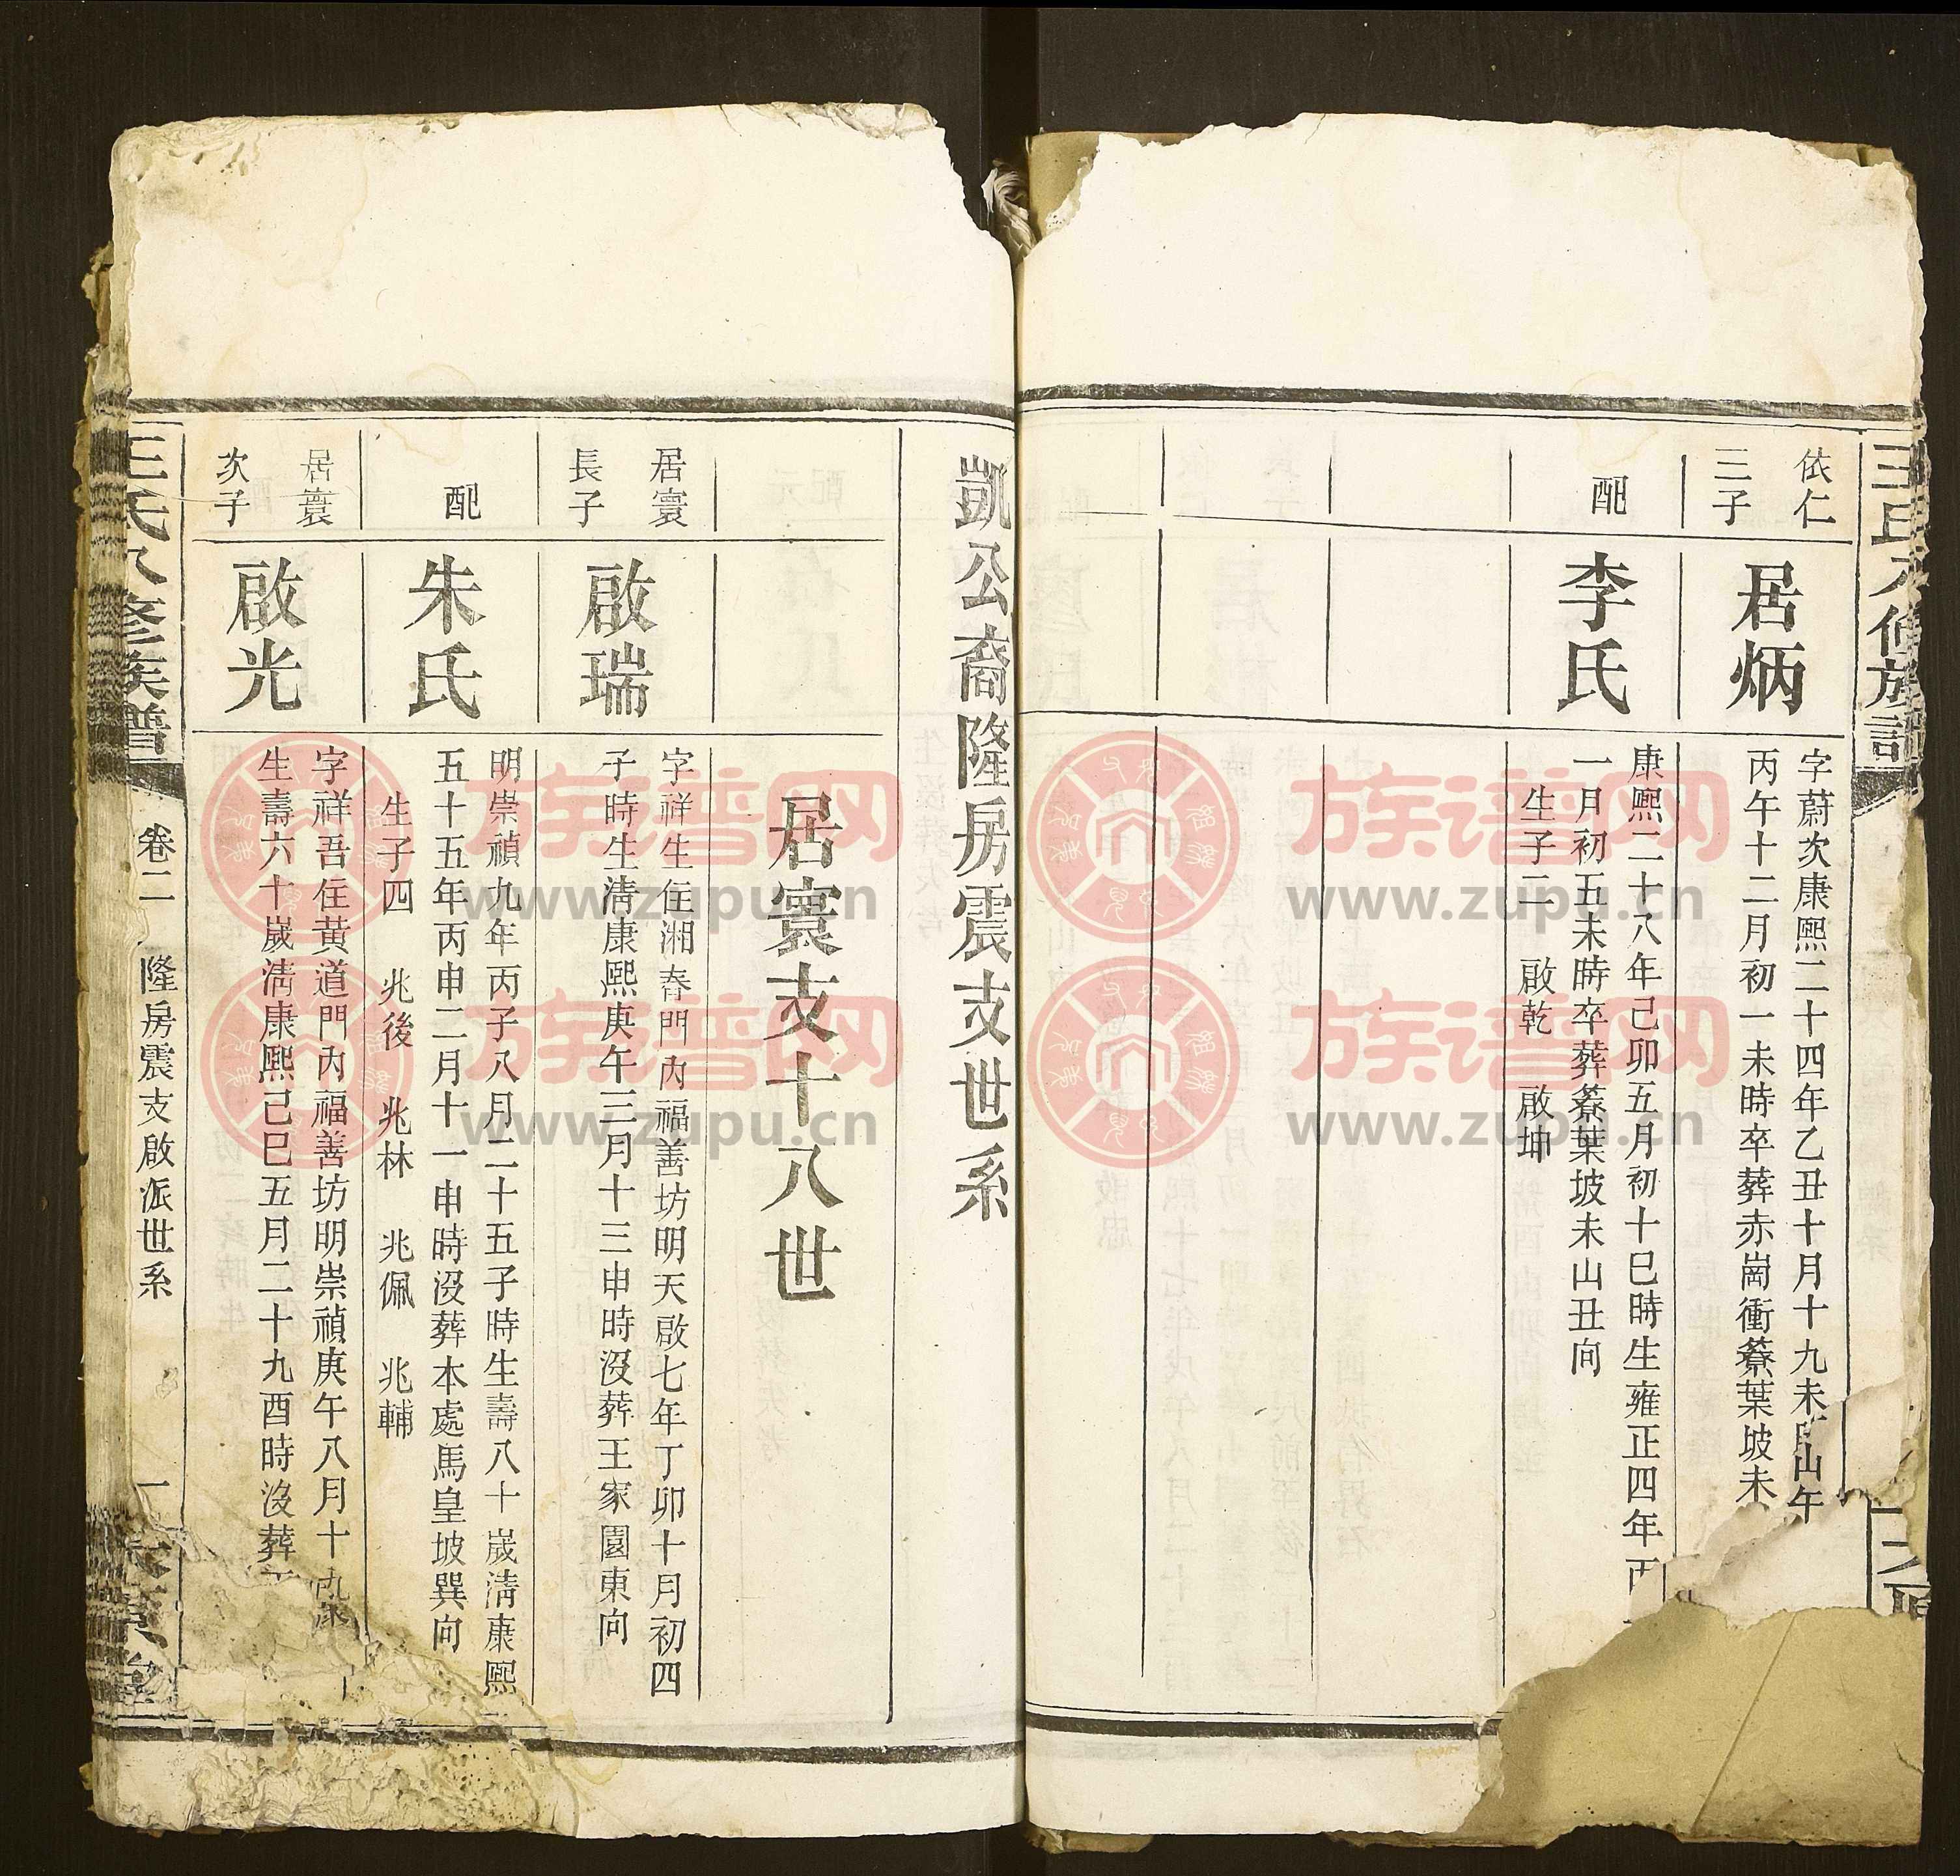 依仁
三子
居炳
字蔚次康熙二十四年乙丑十月十九未
山午
丙午十二月初一未時卒葬赤崗衝簝葉坡未
配
李氏
康熙二十八年己卯五月初十巳時生雍正四年丙
一月初五未時卒葬簝葉坡未山丑向
生子二 啟乾 啟坤
凱公裔隆房震支世系
居寰支十八世
居寰
長子
啟瑞
字祥生住湘春門內福善坊明天啟七年丁卯十月初四
子時生清康熙庚午三月十三申時沒葬王家園東向
配
朱氏
明崇禎九年丙子八月二十五子時生壽八十歲清康熙
五十五年丙申二月十一申時沒葬本處馬皇坡巽向
生子四 兆後 兆林 兆佩 兆輔
居寰
次子
啟光
字祥吾住黃道門內福善坊明崇禎庚午八月十
生壽六十歲清康熙己巳五月二十九酉時沒葬
王氏八修族譜
卷二 隆房震支啟派世系
一
族谱网
www.zupu.cn
族谱网
www.zupu.cn
族谱网
www.zupu.cn
族谱网
www.zupu.cn